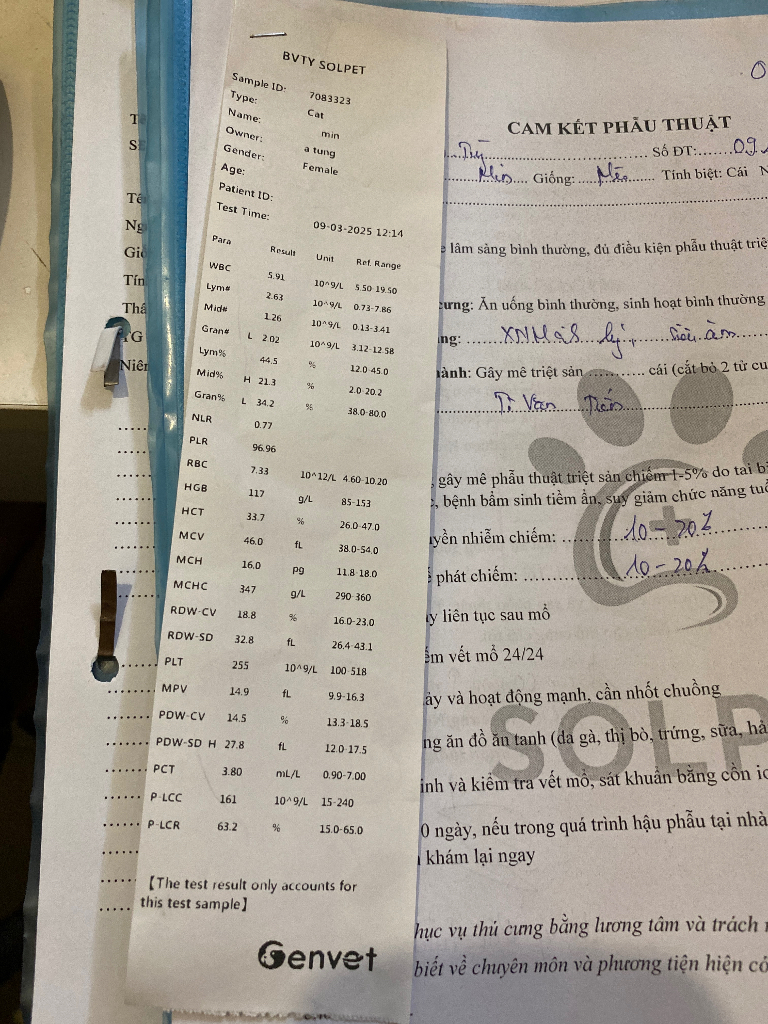 BVTY SOLPET
Sample ID: 7083323
Type: Cat
Name: min
Owner: a tung
Gender: Female
Age:
Patient ID:
Test Time: 09-03-2025 12:14
Para Result Unit Ref. Range
WBC 5.91 10^9/L 5.50-19.50
Lym# 2.63 10^9/L 0.73-7.86
Mid# 1.26 10^9/L 0.13-3.41
Gran# L 2.02 10^9/L 3.12-12.58
Lym% 44.5 % 12.0-45.0
Mid% H 21.3 % 2.0-20.2
Gran% L 34.2 % 38.0-80.0
NLR 0.77
PLR 96.96
RBC 7.33 10^12/L 4.60-10.20
HGB 117 g/L 85-153
HCT 33.7 % 26.0-47.0
MCV 46.0 fL 38.0-54.0
MCH 16.0 pg 11.8-18.0
MCHC 347 g/L 290-360
RDW-CV 18.8 % 16.0-23.0
RDW-SD 32.8 fL 26.4-43.1
PLT 255 10^9/L 100-518
MPV 14.9 fL 9.9-16.3
PDW-CV 14.5 % 13.3-18.5
PDW-SD H 27.8 fL 12.0-17.5
PCT 3.80 mL/L 0.90-7.00
P-LCC 161 10^9/L 15-240
P-LCR 63.2 % 15.0-65.0
【The test result only accounts for
this test sample】
Genvet
CAM KẾT PHẪU THUẬT
Số ĐT: 09
Giống: Mèo Tính biệt: Cái
lâm sàng bình thường, đủ điều kiện phẫu thuật triệ
ưng: Ăn uống bình thường, sinh hoạt bình thường
ng: siêu âm
ành: Gây mê triệt sản cái (cắt bỏ 2 tử cu
Văn
gây mê phẫu thuật triệt sản chiếm 1-5% do tai bi
, bệnh bẩm sinh tiềm ẩn, suy giảm chức năng tuổ
yền nhiễm chiếm: 10-20%
phát chiếm: 10-20%
y liên tục sau mổ
ếm vết mổ 24/24
ảy và hoạt động mạnh, cần nhốt chuồng
ng ăn đồ ăn tanh (da gà, thị bò, trứng, sữa, hả
inh và kiểm tra vết mổ, sát khuẩn bằng cồn io
0 ngày, nếu trong quá trình hậu phẫu tại nhà
khám lại ngay
hục vụ thú cưng bằng lương tâm và trách
biết về chuyên môn và phương tiện hiện có
SOLP